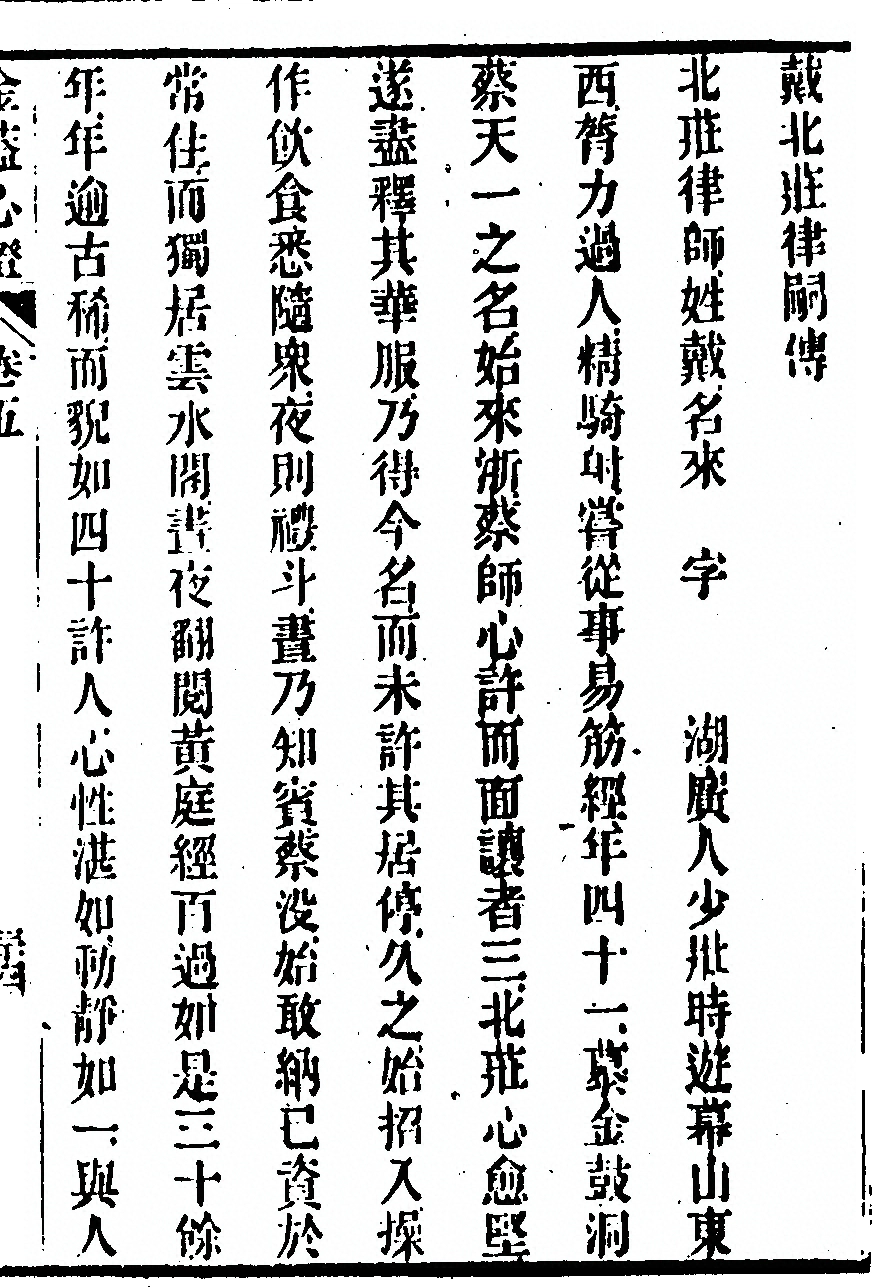 戴北莊律嗣傳
北莊律師姓戴名來 字 湖廣人少壯時遊幕山東
西膂力過人精騎射嘗從事易筋經年四十一慕金鼓洞
蔡天一之名始來浙蔡師心許而面讓者三北莊心愈堅
遂盡釋其華服乃得今名而未許其居停久之始招入操
作飲食悉隨衆夜則禮斗晝乃知賓蔡没始敢納已資於
常住而獨居雲水閣晝夜翻閱黃庭經百過如是三十餘
年年逾古稀而貌如四十許人心性湛如動靜如一與人
金蓋心燈 卷五